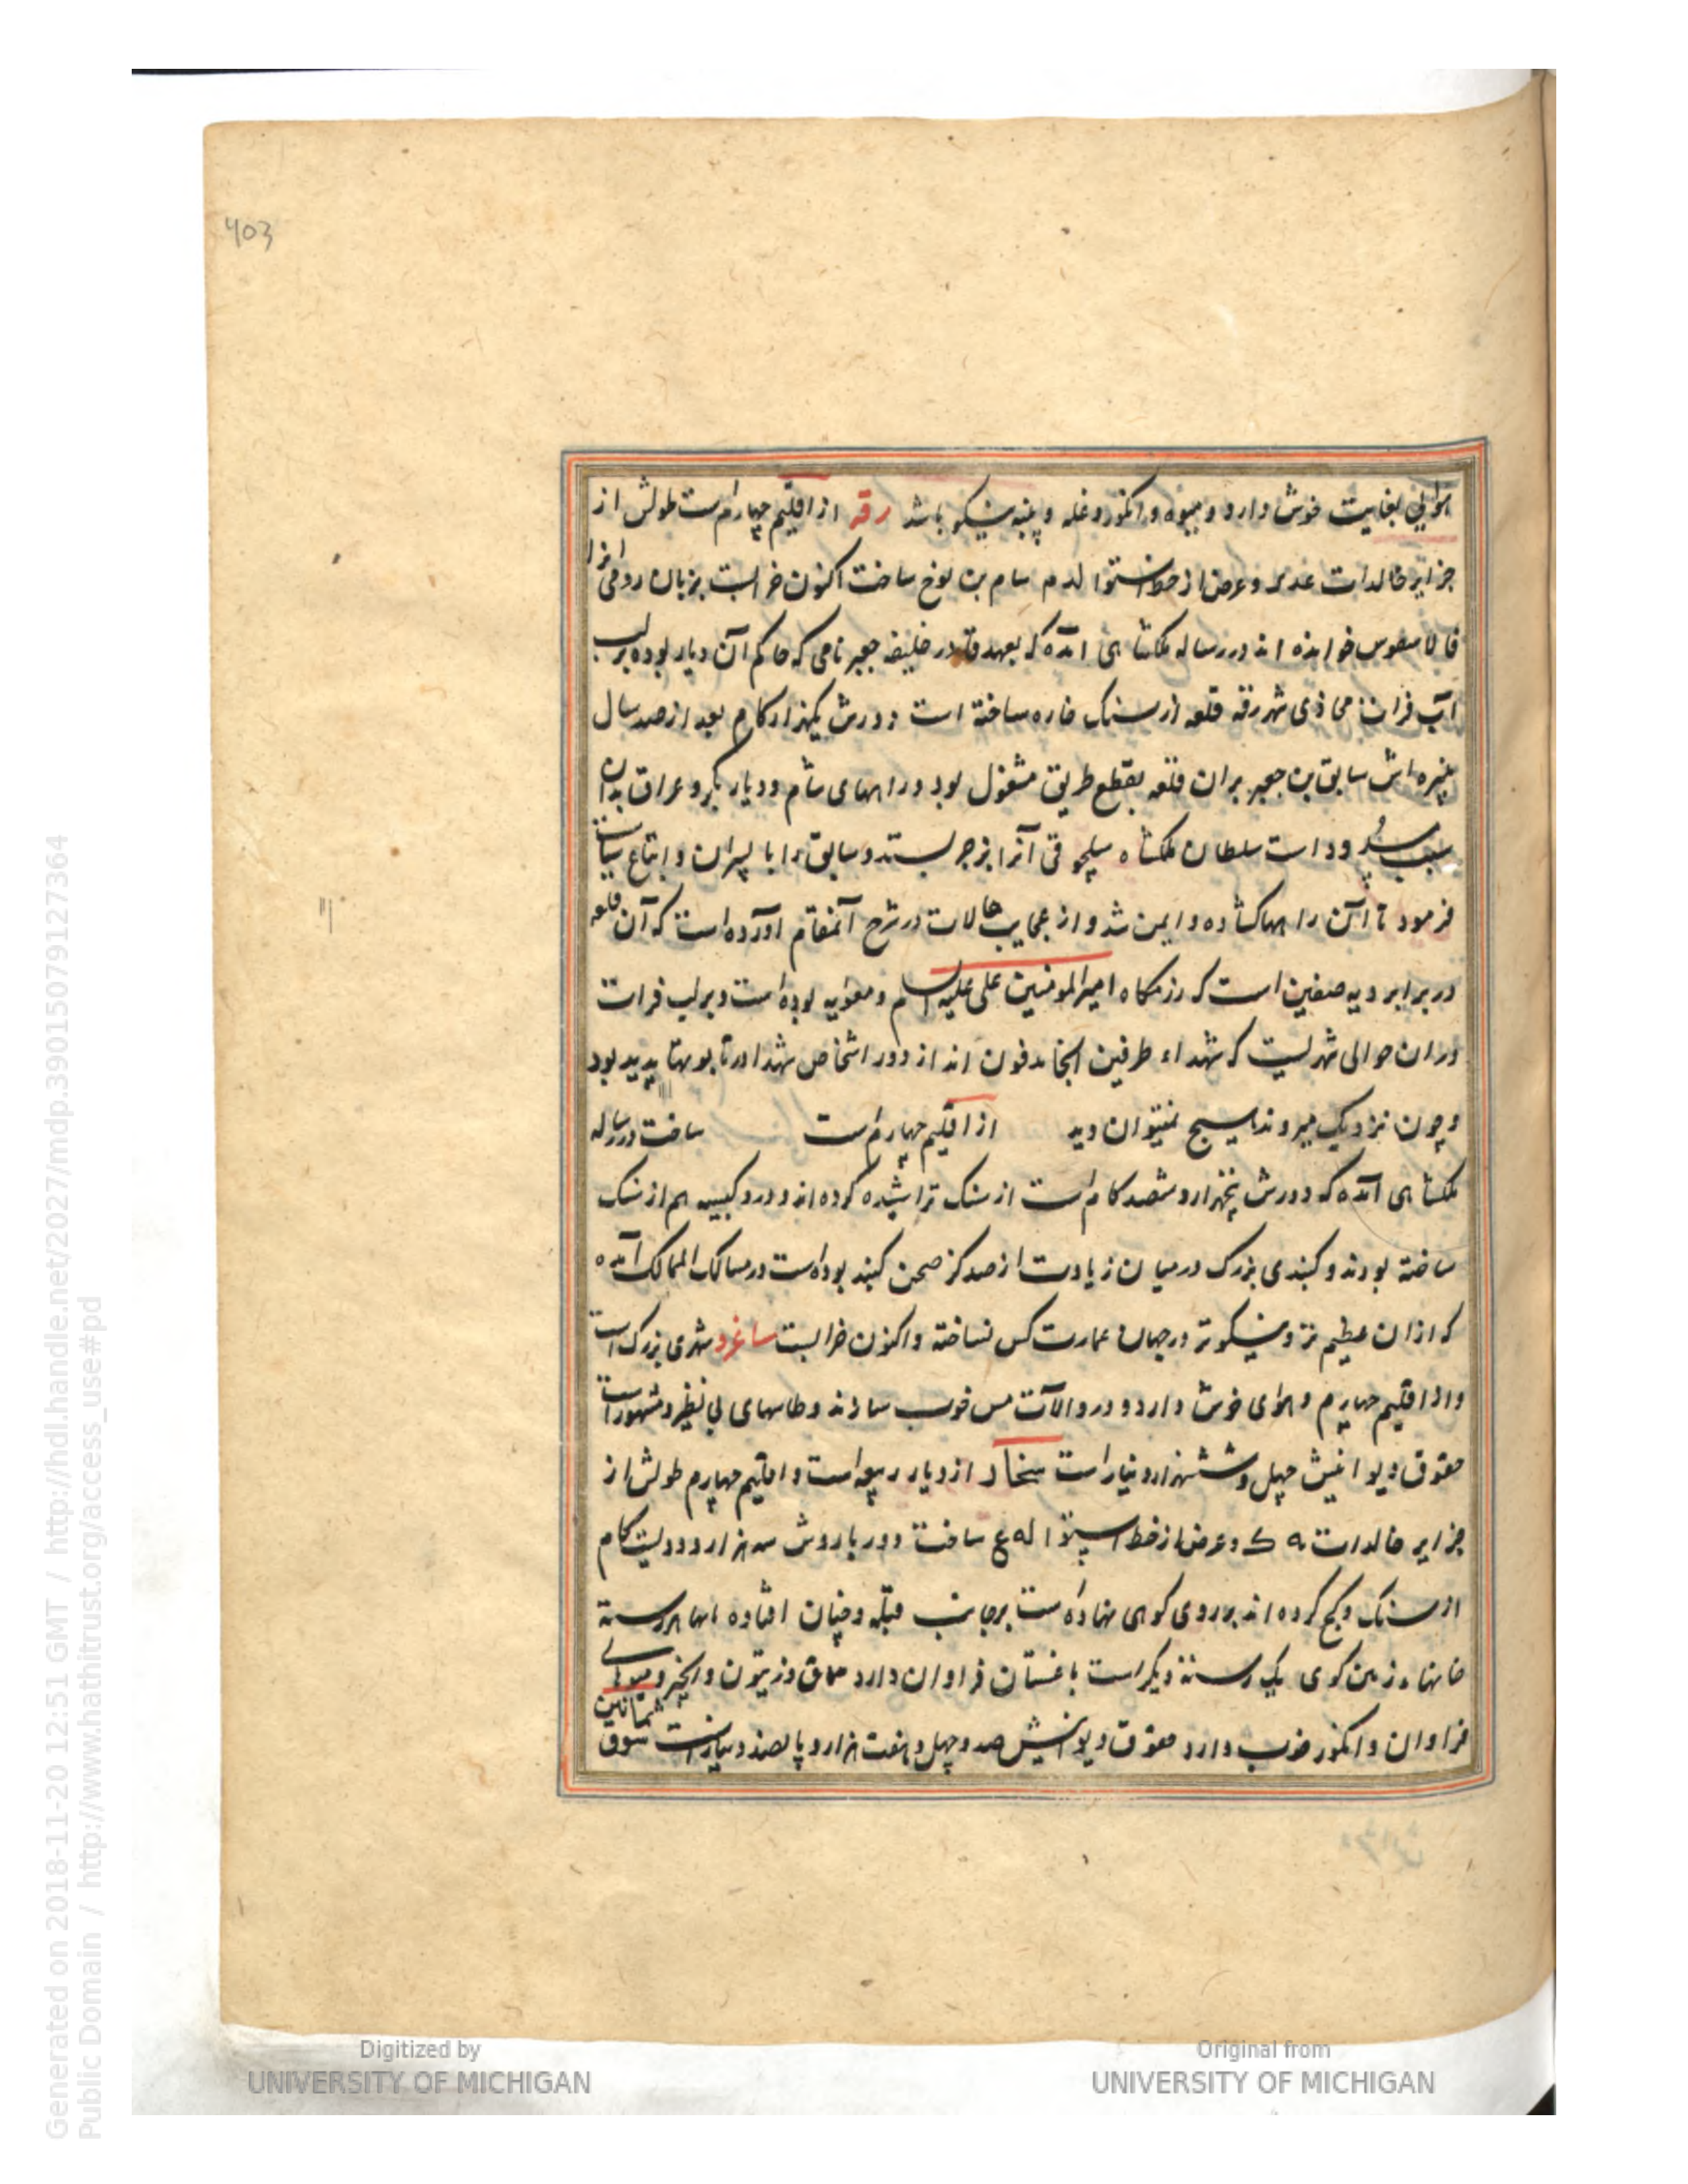 403
هوائی بغایت خوش دارد و میوه و انکور و غله و پنبه نیکو باشد رقه از اقلیم چهارم است طولش از
جزایر خالدات عدیه و عرض از خط استوا لدم سام بن نوح ساخت اکنون خرابست بزبان رومی انرا
خوانده اند در رساله ملکشاهی آمده که بعهد قادر خلیفه جعبر نامی که حاکم آن دیار بوده بر لب
آب فرات محاذی شهر رقه قلعه از سنک خاره ساخته است دورش یکهزار کام بعد از صد سال
نبیره اش سابق بن جعبر بران قلعه بقطع طریق مشغول بود و راههای شام و دیار بکر و عراق بدان
سبب مسدود است سلطان ملکشاه سلجوقی آنرا بزجر بستد و سابق را با پسران و اتباع سیاست
فرمود تا آن راهها کشاده و ایمن شد و از عجایب حالات در شرح آنمقام آورده است که آن قلعه
در برابر دیه صفین است که رزمکاه امیر المومنین علی علیه السلام و معویه بوده است و بر لب فرات
دران حوالی شهریست که شهداء طرفین آنجا مدفون اند از دور اشخاص شهدا در تابوتها پدید بود
و چون نزدیک میروند هیچ نمیتوان دید از اقلیم چهارم است ساخت در رساله
ملکشاهی آمده که دورش پنجهزار و ششصد کام است از سنک تراشیده کرده اند و درو کنیسه هم از سنک
ساخته بودند و کنبدی بزرک در میان زیادت از صد کز صحن کنبد بوده است در مسالک الممالک آمده
که ازان عظیم تر و نیکوتر در جهان عمارت کس نساخته و اکنون خرابست ساغرد شهری بزرک است
و از اقلیم چهارم و هوای خوش دارد و درو آلات مس خوب سازند و طاسهای بی نظیر و مشهور است
حقوق دیوانیش چهل و ششهزار دینار است سنجار از دیار ربیعه است و اقلیم چهارم طولش از
جزایر خالدات و عرض از خط استوا ساخت دور باروش سه هزار و دویست کام
از سنک و کج کرده اند بر روی کوهی نهاده است بر جانب قبله و چنان افتاده
خانها زمین کوی یک رسته دیکر است باغستان فراوان دارد سماق و زیتون و انجیر و میوهای
فراوان و انکور خوب دارد حقوق دیوانیش صد و چهل و هفت هزار و پانصد دینار است سوق
ثمانین
Digitized by
UNIVERSITY OF MICHIGAN
Original from
UNIVERSITY OF MICHIGAN
Generated on 2018-11-20 12:51 GMT / http://hdl.handle.net/2027/mdp.39015079127364
Public Domain / http://www.hathitrust.org/access_use#pd